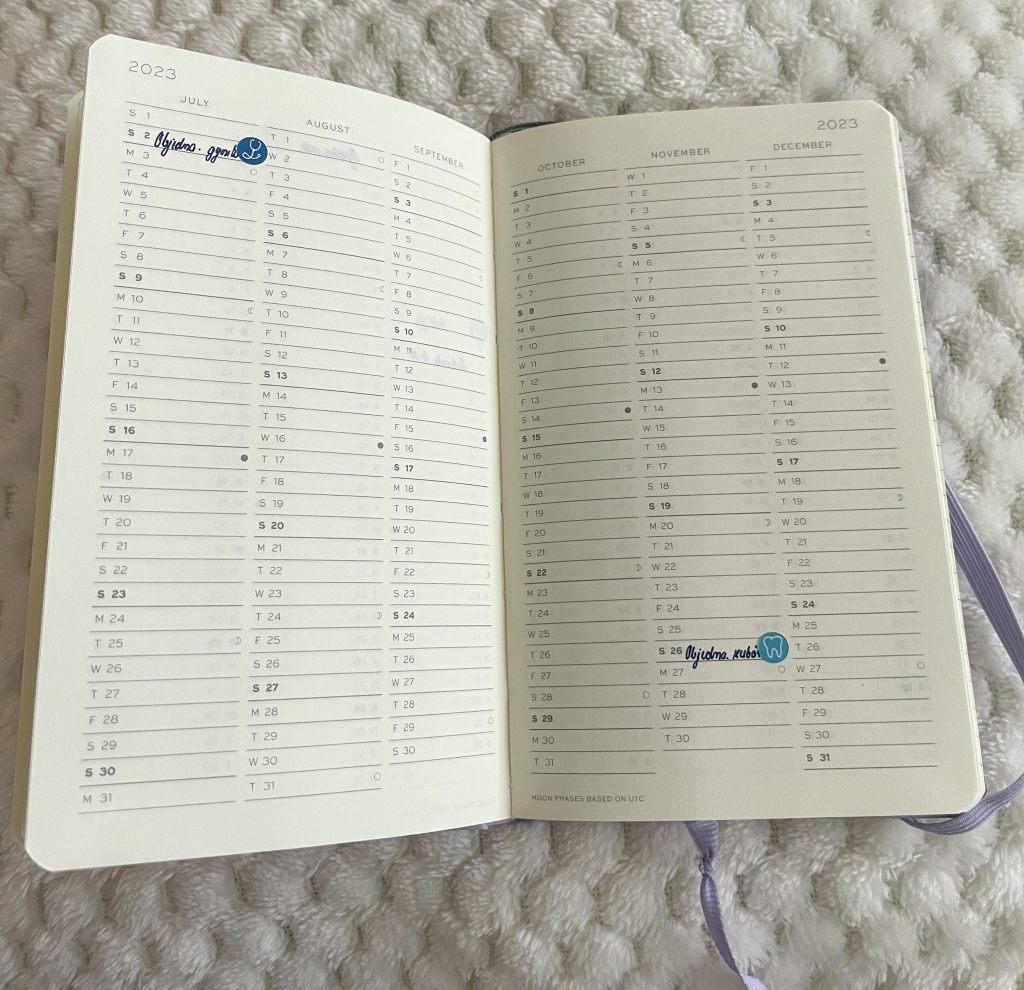 2023
JULY
S 1
S 2 Objedna.
M 3
T 4
W 5
T 6
F 7
S 8
S 9
M 10
T 11
W 12
T 13
F 14
S 15
S 16
M 17
T 18
W 19
T 20
F 21
S 22
S 23
M 24
T 25
W 26
T 27
F 28
S 29
S 30
M 31
AUGUST
T 1
W 2
T 3
F 4
S 5
S 6
M 7
T 8
W 9
T 10
F 11
S 12
S 13
M 14
T 15
W 16
T 17
F 18
S 19
S 20
M 21
T 22
W 23
T 24
F 25
S 26
S 27
M 28
T 29
W 30
T 31
SEPTEMBER
F 1
S 2
S 3
M 4
T 5
W 6
T 7
F 8
S 9
S 10
M 11
T 12
W 13
T 14
F 15
S 16
S 17
M 18
T 19
W 20
T 21
F 22
S 23
S 24
M 25
T 26
W 27
T 28
F 29
S 30
2023
OCTOBER
S 1
M 2
T 3
W 4
T 5
F 6
S 7
S 8
M 9
T 10
W 11
T 12
F 13
S 14
S 15
M 16
T 17
W 18
T 19
F 20
S 21
S 22
M 23
T 24
W 25
T 26
F 27
S 28
S 29
M 30
T 31
NOVEMBER
W 1
T 2
F 3
S 4
S 5
M 6
T 7
W 8
T 9
F 10
S 11
S 12
M 13
T 14
W 15
T 16
F 17
S 18
S 19
M 20
T 21
W 22
T 23
F 24
S 25
S 26 Objedna.
M 27
T 28
W 29
T 30
DECEMBER
F 1
S 2
S 3
M 4
T 5
W 6
T 7
F 8
S 9
S 10
M 11
T 12
W 13
T 14
F 15
S 16
S 17
M 18
T 19
W 20
T 21
F 22
S 23
S 24
M 25
T 26
W 27
T 28
F 29
S 30
S 31
MOON PHASES BASED ON UTC